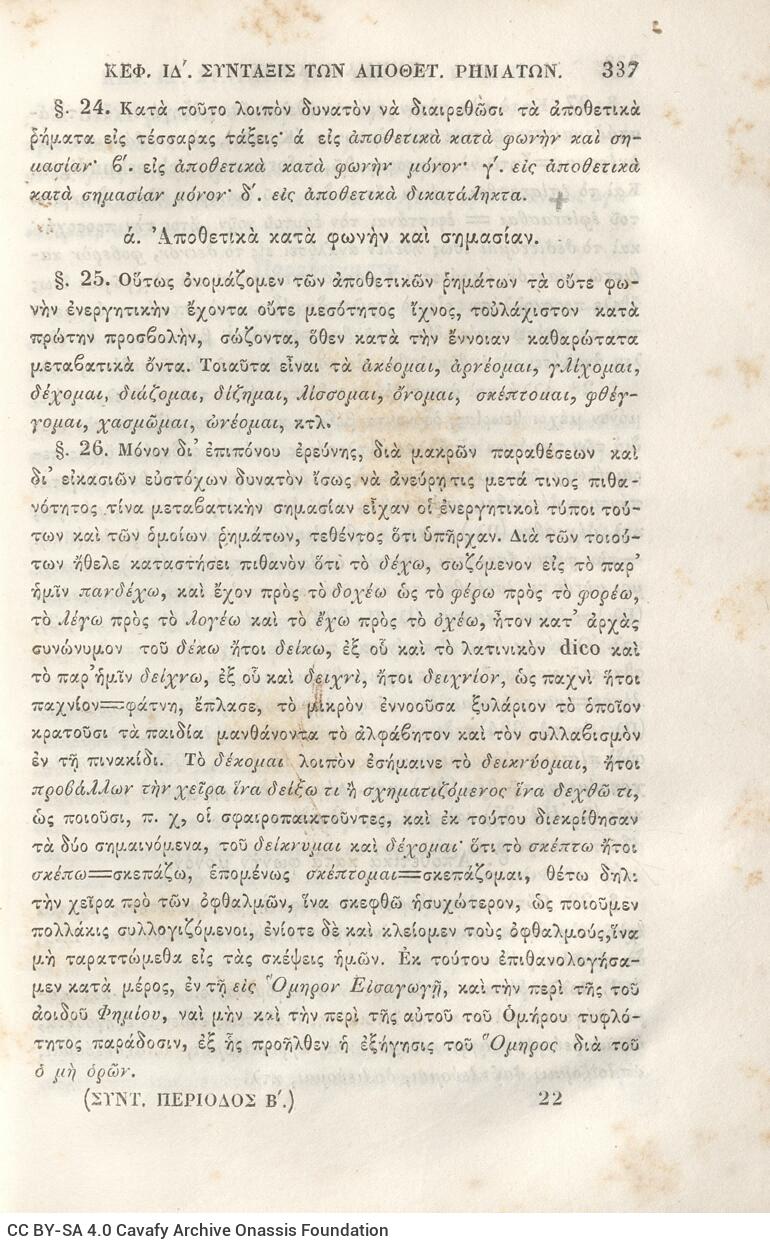 ΚΕΦ. ΙΔ΄. ΣΥΝΤΑΞΙΣ ΤΩΝ ΑΠΟΘΕΤ. ΡΗΜΑΤΩΝ. 337
§. 24. Κατὰ τοῦτο λοιπὸν δυνατὸν νὰ διαιρεθῶσι τὰ ἀποθετικὰ
ῥήματα εἰς τέσσαρας τάξεις· ά εἰς ἀποθετικὰ κατὰ φωνὴν καὶ ση-
μασίαν· β΄. εἰς ἀποθετικὰ κατὰ φωνὴν μόνον· γ΄. εἰς ἀποθετικὰ
κατὰ σημασίαν μόνον· δ΄. εἰς ἀποθετικὰ δικατάληκτα.
ά. Ἀποθετικὰ κατὰ φωνὴν καὶ σημασίαν.
§. 25. Οὕτως ὀνομάζομεν τῶν ἀποθετικῶν ῥημάτων τὰ οὔτε φω-
νὴν ἐνεργητικὴν ἔχοντα οὔτε μεσότητος ἴχνος, τοὐλάχιστον κατὰ
πρώτην προσβολὴν, σώζοντα, ὅθεν κατὰ τὴν ἔννοιαν καθαρώτατα
μεταβατικὰ ὄντα. Τοιαῦτα εἶναι τὰ ἀκέομαι, ἀρνέομαι, γλίχομαι,
δέχομαι, διάζομαι, δίζημαι, λίσσομαι, ὄνομαι, σκέπτομαι, φθέγ-
γομαι, χασμῶμαι, ὠνέομαι, κτλ.
§. 26. Μόνον δι᾽ ἐπιπόνου ἐρεύνης, διὰ μακρῶν παραθέσεων καὶ
δι᾽ εἰκασιῶν εὐστόχων δυνατὸν ἴσως νὰ ἀνεύρῃ τις μετά τινος πιθα-
νότητος τίνα μεταβατικὴν σημασίαν εἶχαν οἱ ἐνεργητικοὶ τύποι τού-
των καὶ τῶν ὁμοίων ῥημάτων, τεθέντος ὅτι ὑπῆρχαν. Διὰ τῶν τοιού-
των ἤθελε καταστήσει πιθανὸν ὅτι τὸ δέχω, σωζόμενον εἰς τὸ παρ᾽
ἡμῖν πανδέχω, καὶ ἔχον πρὸς τὸ δοχέω ὡς τὸ φέρω πρὸς τὸ φορέω,
τὸ λέγω πρὸς τὸ λογέω καὶ τὸ ἔχω πρὸς τὸ ὀχέω, ἦτον κατ᾽ ἀρχὰς
συνώνυμον τοῦ δέκω ἤτοι δείκω, ἐξ οὗ καὶ τὸ λατινικὸν dico καὶ
τὸ παρ᾽ἡμῖν δείχνω, ἐξ οὗ καὶ δειχνὶ, ἤτοι δειχνίον, ὡς παχνὶ ἤτοι
παχνίον=φάτνη, ἔπλασε, τὸ μικρὸν ἐννοοῦσα ξυλάριον τὸ ὁποῖον
κρατοῦσι τὰ παιδία μανθάνοντα τὸ ἀλφάβητον καὶ τὸν συλλαβισμὸν
ἐν τῇ πινακίδι. Τὸ δέκομαι λοιπὸν ἐσήμαινε τὸ δεικνύομαι, ἤτοι
προβάλλων τὴν χεῖρα ἵνα δείξω τι ἢ σχηματιζόμενος ἵνα δεχθῶ τι,
ὡς ποιοῦσι, π. χ, οἱ σφαιροπαικτοῦντες, καὶ ἐκ τούτου διεκρίθησαν
τὰ δύο σημαινόμενα, τοῦ δείκνυμαι καὶ δέχομαι· ὅτι τὸ σκέπτω ἤτοι
σκέπω=σκεπάζω, ἑπομένως σκέπτομαι=σκεπάζομαι, θέτω δηλ:
τὴν χεῖρα πρὸ τῶν ὀφθαλμῶν, ἵνα σκεφθῶ ἡσυχώτερον, ὡς ποιοῦμεν
πολλάκις συλλογιζόμενοι, ἐνίοτε δὲ καὶ κλείομεν τοὺς ὀφθαλμούς,ἵνα
μὴ ταραττώμεθα εἰς τὰς σκέψεις ἡμῶν. Ἐκ τούτου ἐπιθανολογήσα-
μεν κατὰ μέρος, ἐν τῇ εἰς Ὅμηρον Εἰσαγωγῇ, καὶ τὴν περὶ τῆς τοῦ
ἀοιδοῦ Φημίου, ναὶ μὴν καὶ τὴν περὶ τῆς αὐτοῦ τοῦ Ὁμήρου τυφλό-
τητος παράδοσιν, ἐξ ἧς προῆλθεν ἡ ἐξήγησις τοῦ Ὅμηρος διὰ τοῦ
ὁ μὴ ὁρῶν.
(ΣΥΝΤ. ΠΕΡΙΟΔΟΣ Β΄.) 22
CC BY-SA 4.0 Cavafy Archive Onassis Foundation